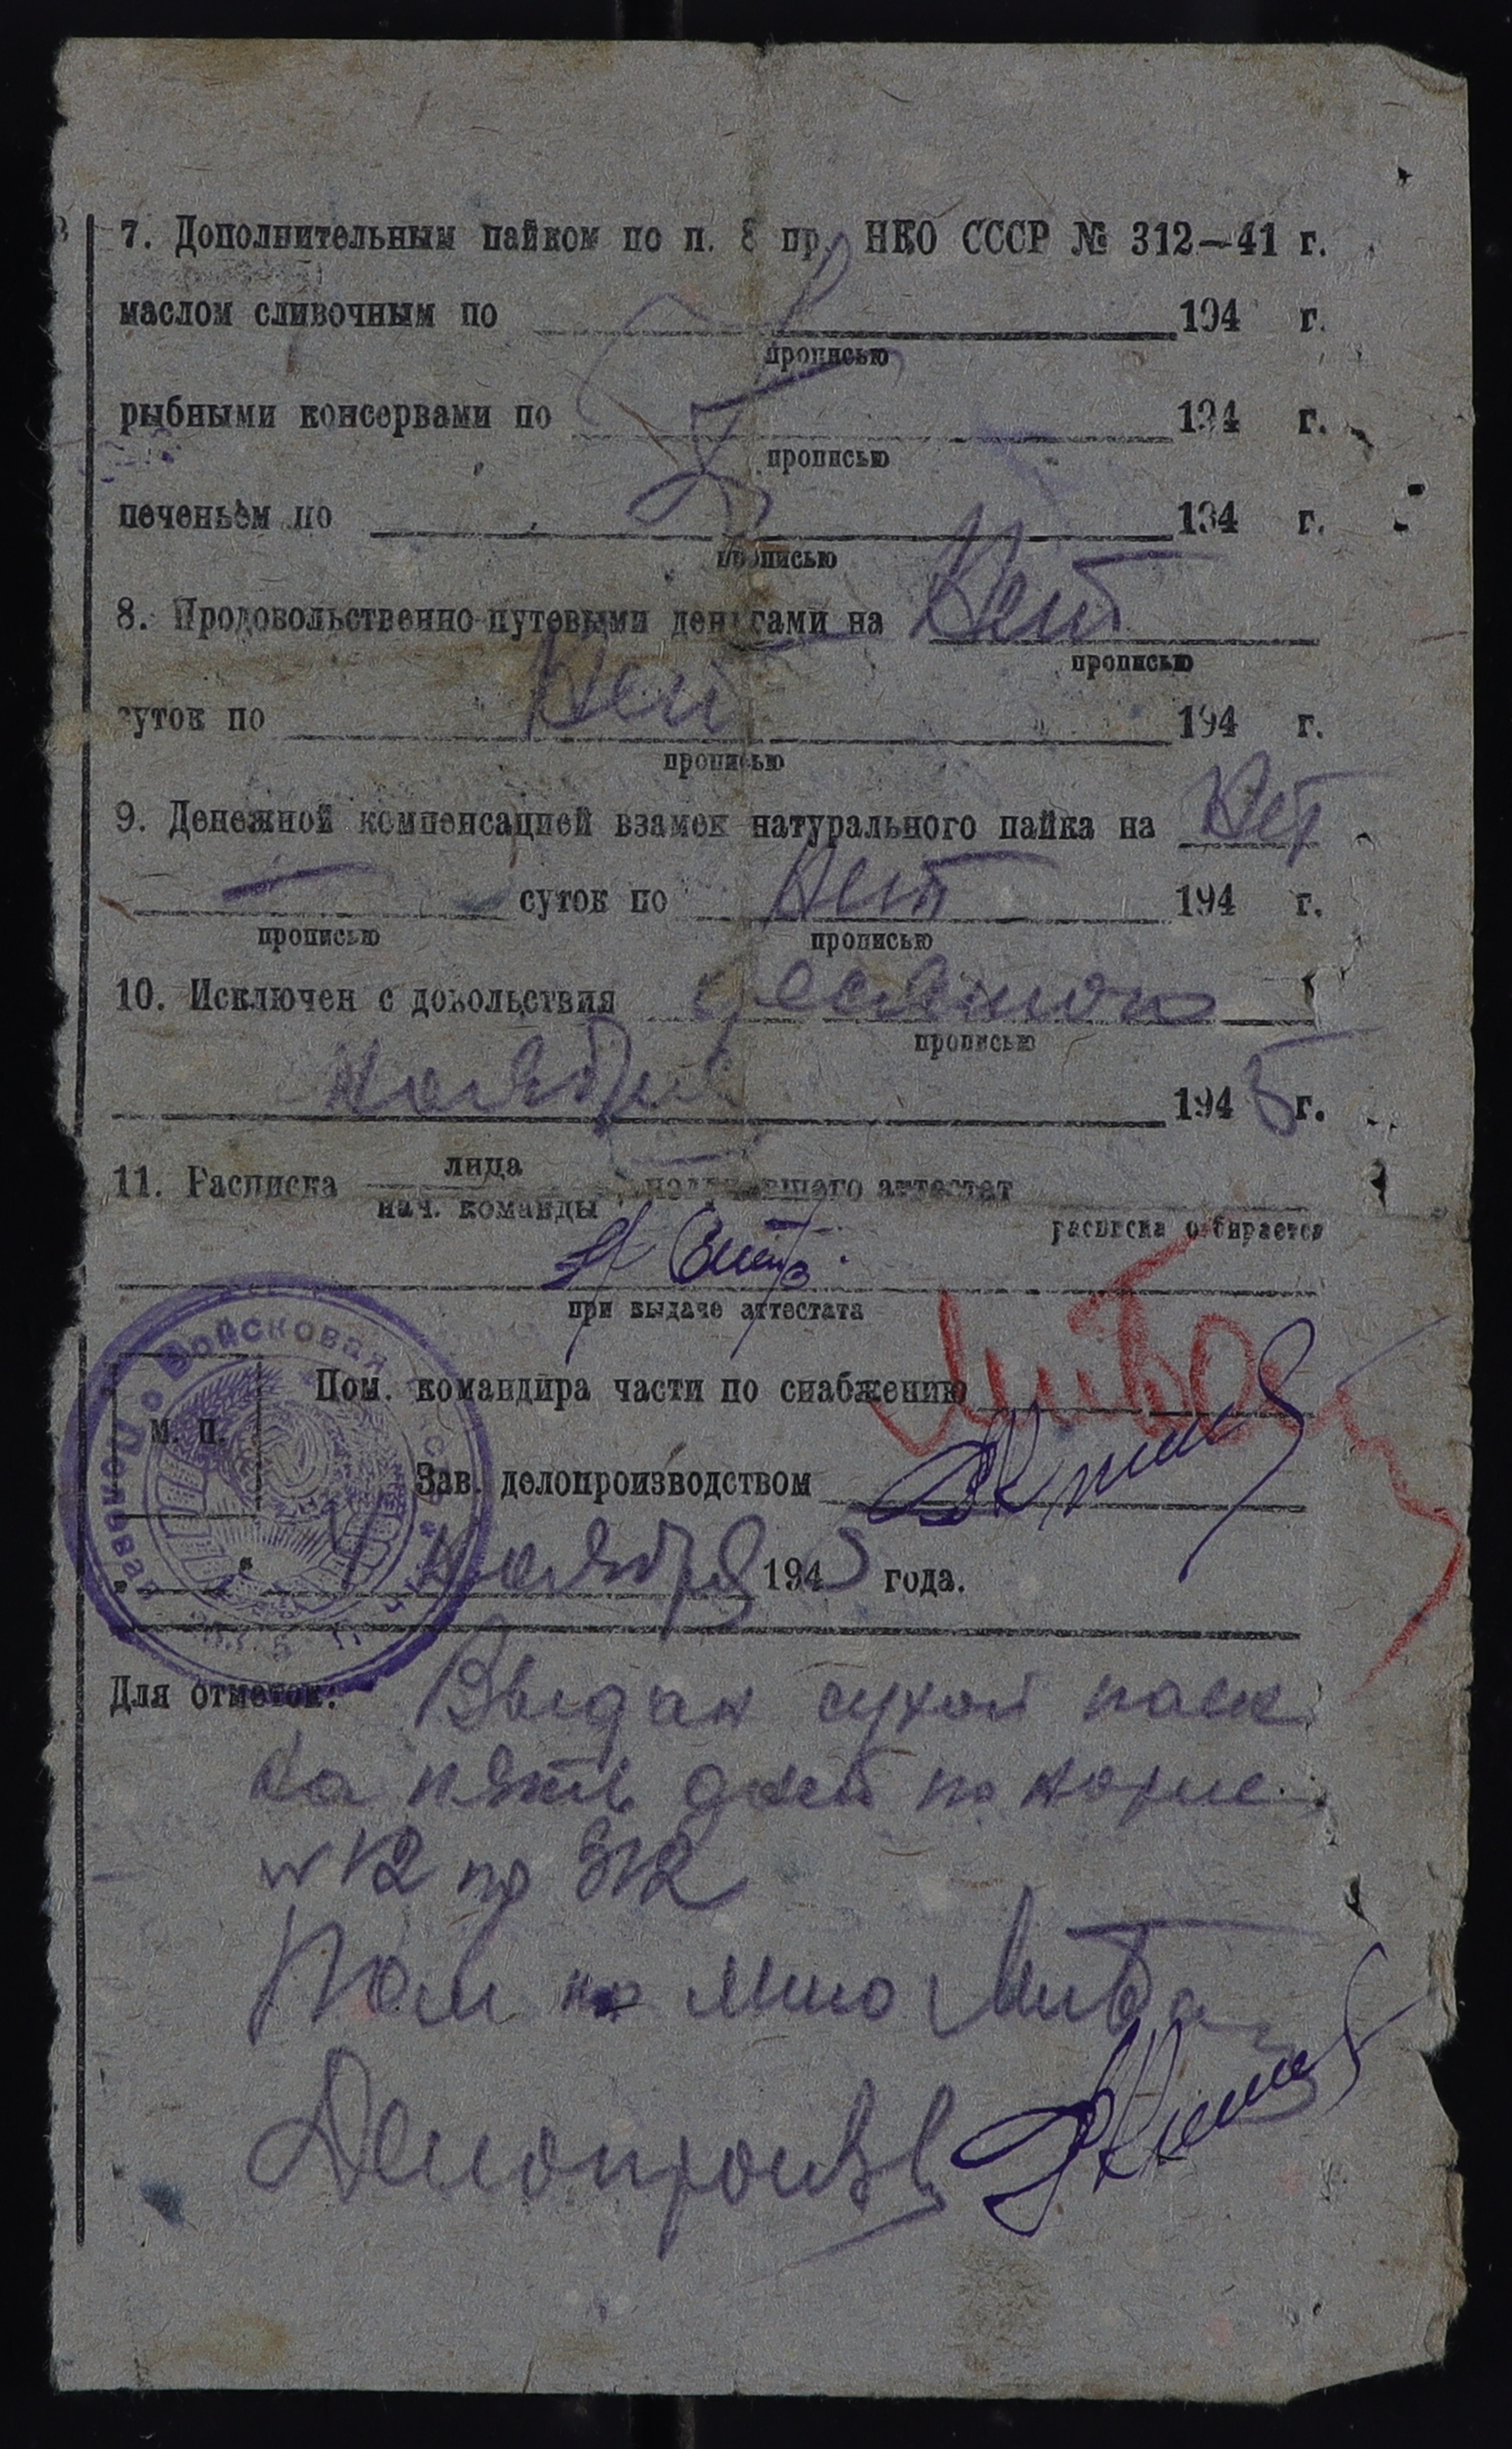 7. Дополнительным пайком по п. 8 пр. НКО СССР № 312—41 г.
маслом сливочным по 194 г.
прописью
рыбными консервами по 194 г.
прописью
печеньем по 194 г.
прописью
8. Продовольственно-путевыми деньгами на Нет
прописью
суток по Нет 194 г.
прописью
9. Денежной компенсацией взамен натурального пайка на Нет
— суток по Нет 194 г.
прописью прописью
10. Исключен с довольствия десятого
прописью
Ноября 1945 г.
11. Расписка лица получившего аттестат
нач. команды
расписка отбирается
при выдаче аттестата
Войсковая часть
Полевая почта
Пом. командира части по снабжению
М. П.
Зав. делопроизводством
Ноября 1945 года.
Для отметок: Выдан сухой паек
На пять дней по норме
N 12 пр 312
Пом по
Делопроизв